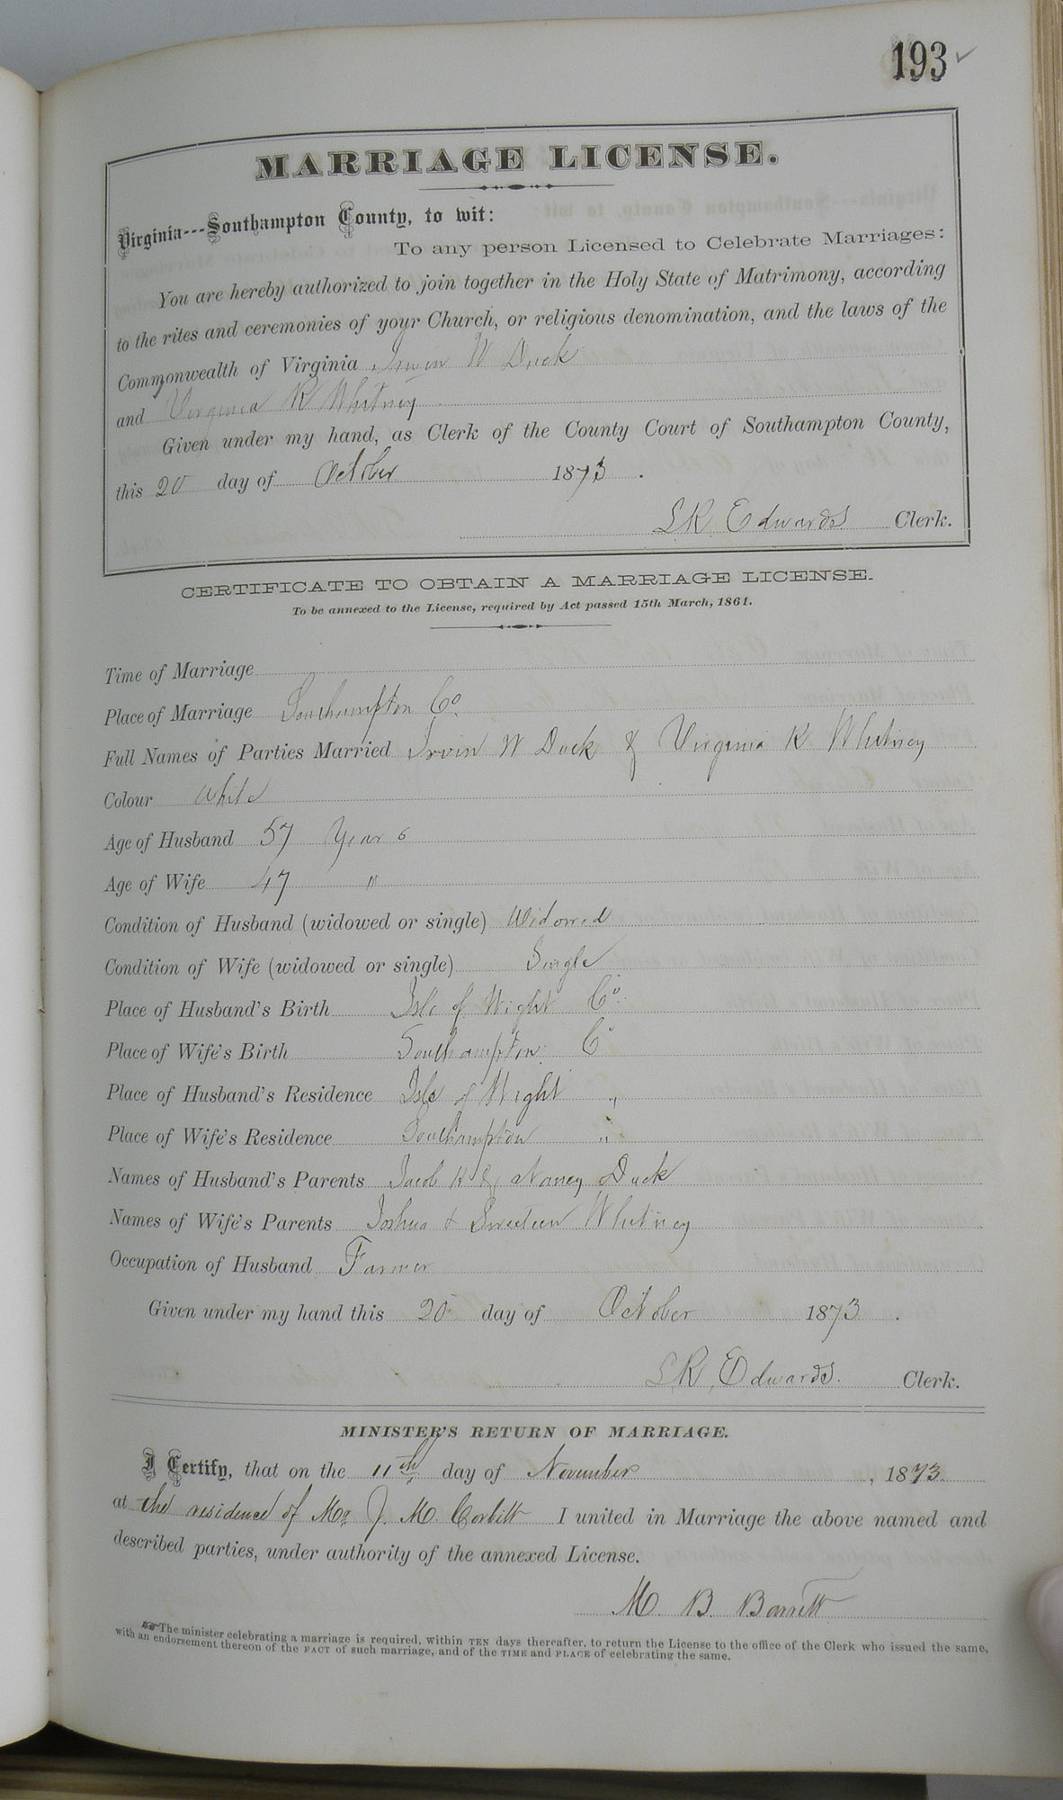 193
MARRIAGE LICENSE.
Virginia---Southampton County, to wit:
To any person Licensed to Celebrate Marriages:
You are hereby authorized to join together in the Holy State of Matrimony, according
to the rites and ceremonies of your Church, or religious denomination, and the laws of the
Commonwealth of Virginia Irvin W Duck
and Virginia R Whitney
Given under my hand, as Clerk of the County Court of Southampton County,
this 20 day of October 1873.
L R Edwards Clerk.
CERTIFICATE TO OBTAIN A MARRIAGE LICENSE.
To be annexed to the License, required by Act passed 15th March, 1861.
Time of Marriage
Place of Marriage Southampton Co.
Full Names of Parties Married Irvin W Duck & Virginia R Whitney
Colour White
Age of Husband 57 Years
Age of Wife 47 "
Condition of Husband (widowed or single) Widowed
Condition of Wife (widowed or single) Single
Place of Husband's Birth Isle of Wight Co.
Place of Wife's Birth Southampton C
Place of Husband's Residence Isle of Wight "
Place of Wife's Residence Southampton "
Names of Husband's Parents Jacob & Nancy Duck
Names of Wife's Parents Joshua & Whitney
Occupation of Husband Farmer
Given under my hand this 20 day of October 1873.
L R Edwards. Clerk.
MINISTER'S RETURN OF MARRIAGE.
I Certify, that on the 11th day of November, 1873.
at the residence of Mr J. M. Corbitt I united in Marriage the above named and
described parties, under authority of the annexed License.
M. B. Barrett
The minister celebrating a marriage is required, within TEN days thereafter, to return the License to the office of the Clerk who issued the same,
with an endorsement thereon of the FACT of such marriage, and of the TIME and PLACE of celebrating the same.